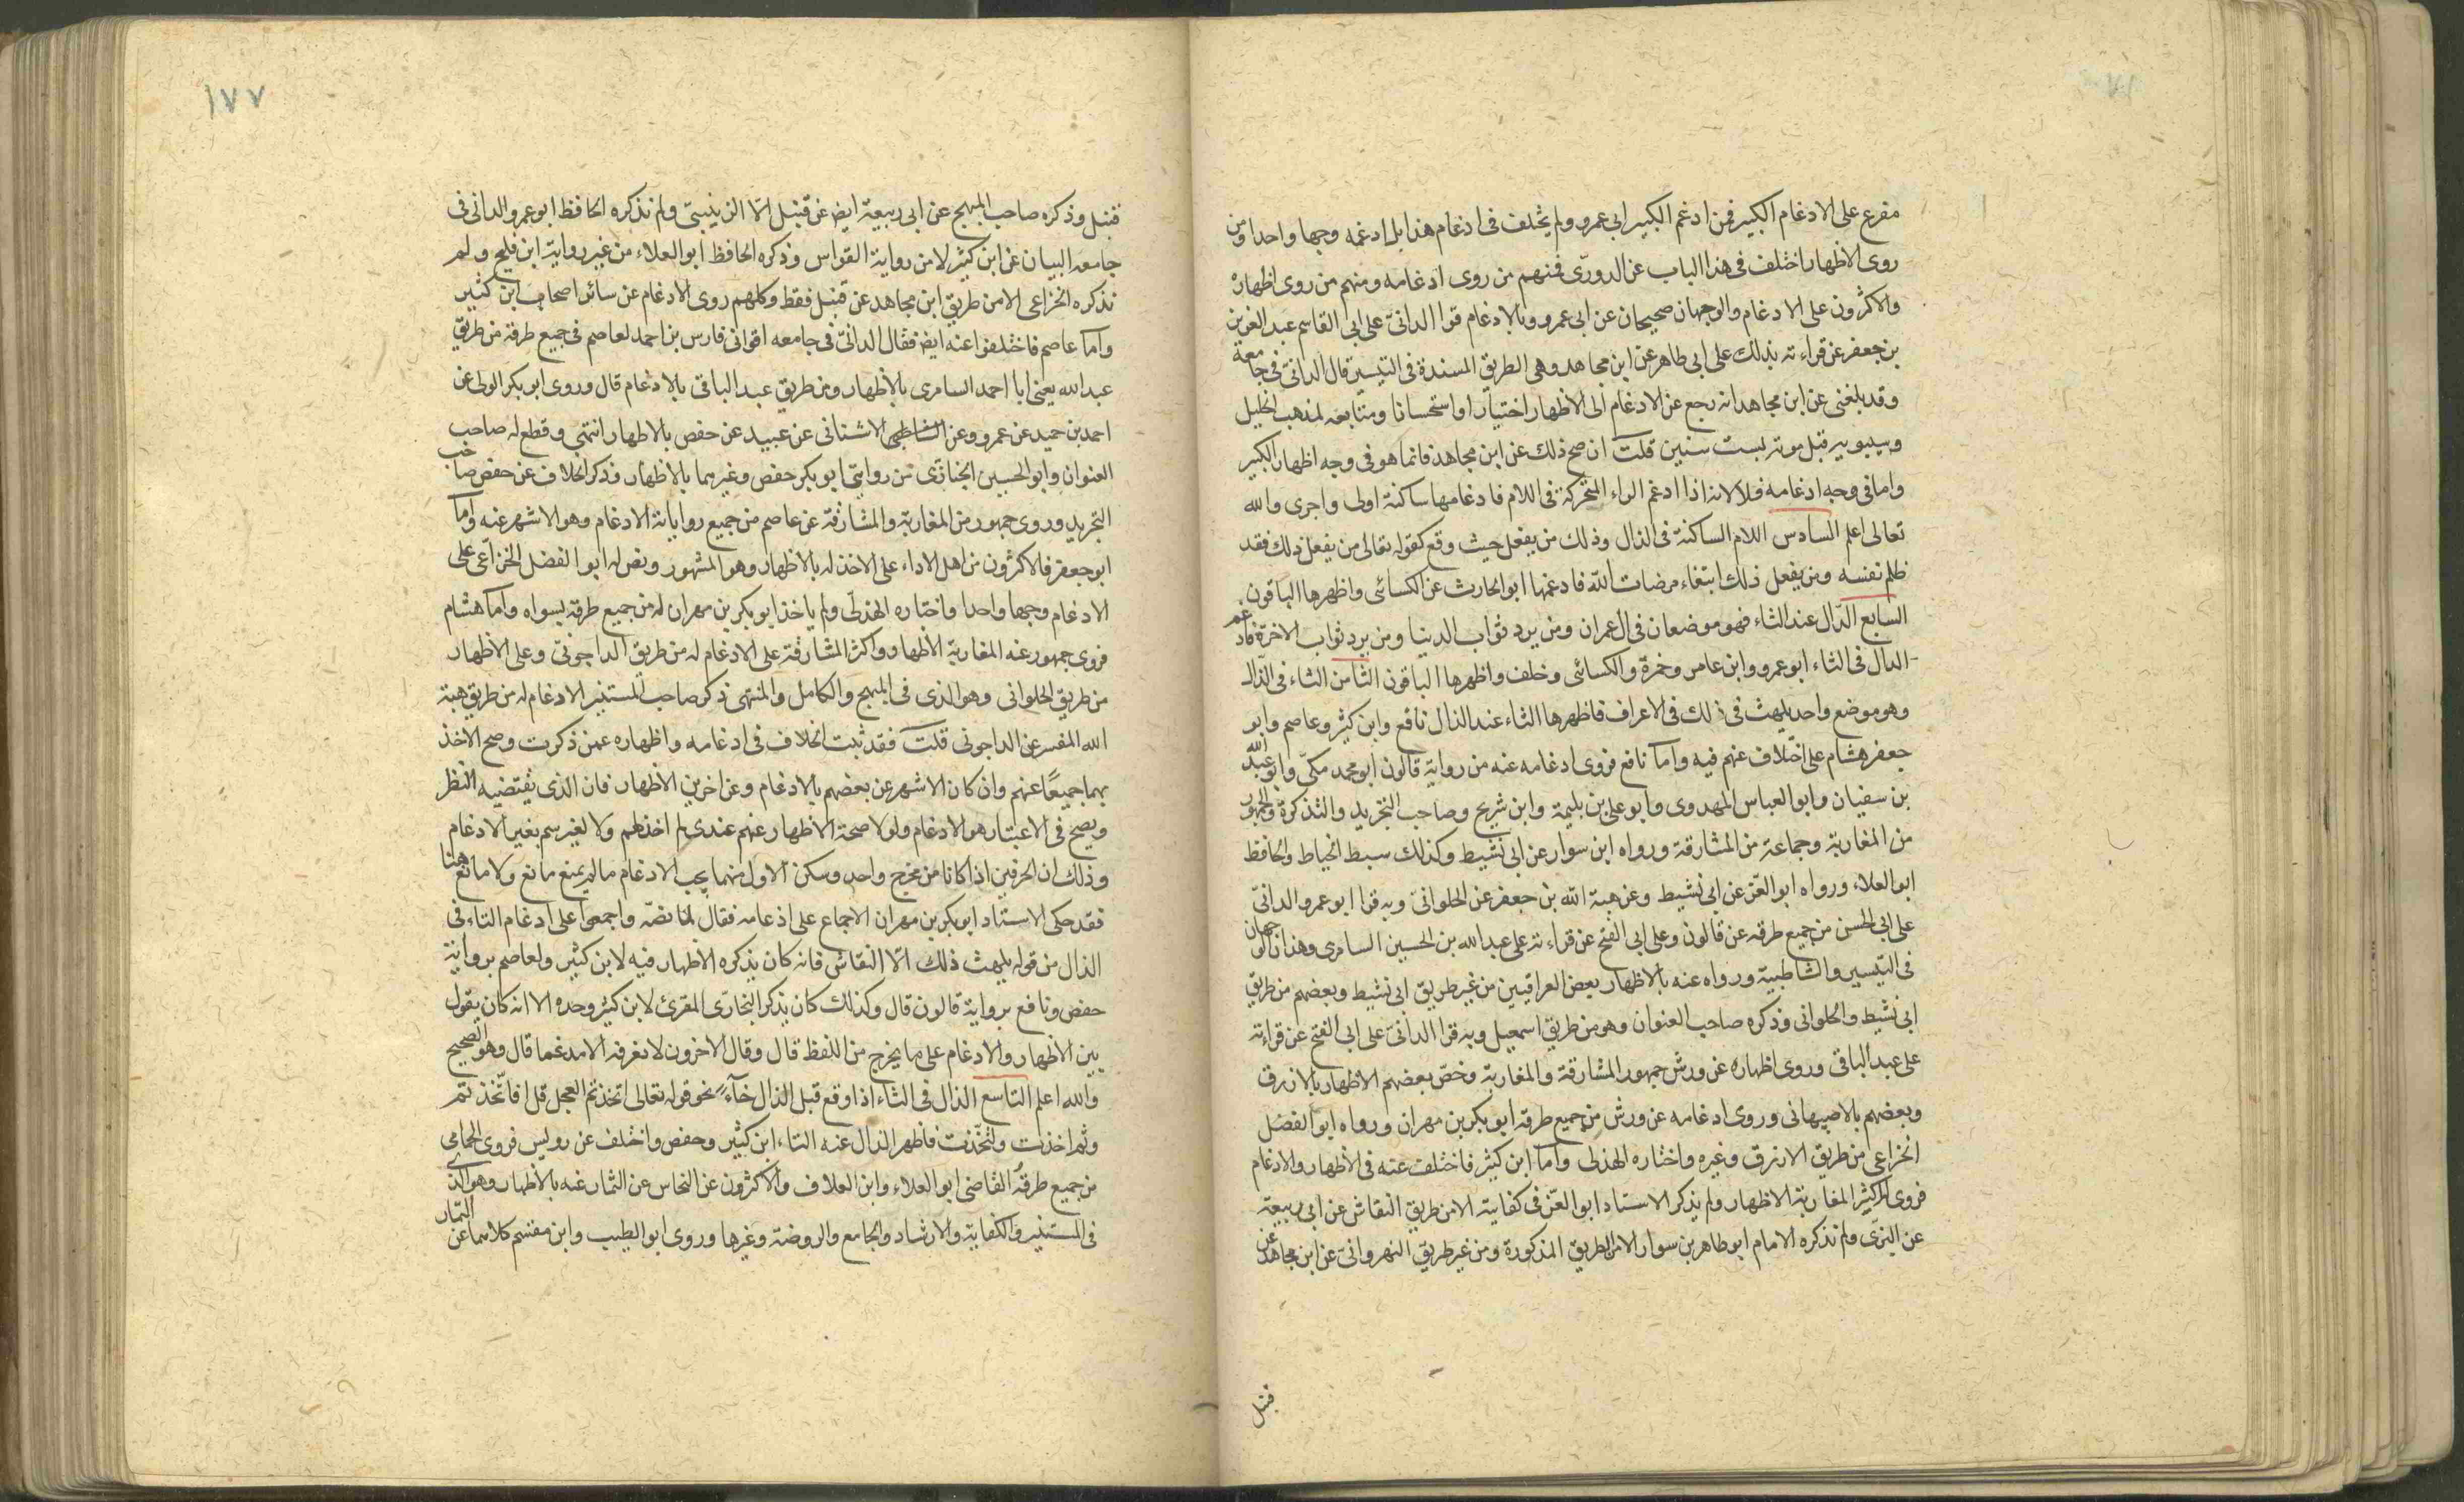 مفرع على الادغام الكبير فمن ادغم الكبير ابى عمرو ولم يختلف فى ادغام هذا بل ادغمه وجها واحدا ومن
روى الاظهار اختلف فى هذا الباب عن الدورى فمنهم من روى ادغامه ومنهم من روى اظهاره
والاكثرون على الادغام والوجهان صحيحان عن ابى عمرو وبالادغام قرا الدانى على ابى القاسم عبد العزيز
بن جعفر عن قراءته بذلك على ابى طاهر عن ابن مجاهد وهى الطريق المسندة فى التيسير قال الدانى فى جامعه
وقد بلغنى عن ابن مجاهد انه رجع عن الادغام الى الاظهار اختيارا واستحسانا ومتابعه لمذهب الخليل
وسيبويه قبل موته بست سنين قلت ان صح ذلك عن ابن مجاهد فانما هو فى وجه اظهار الكبير
واما فى وجه ادغامه فلا لانه اذا ادغم الراء المتحركة فى اللام فادغامها ساكنة اولى واجرى والله
تعالى اعلم السادس اللام الساكنة فى الذال وذلك من يفعل حيث وقع كقوله تعالى من يفعل ذلك فقد
ظلم نفسه ومن يفعل ذلك ابتغاء مرضات الله فادغمها ابو الحارث عن الكسائى واظهرها الباقون
السابع الدال عند الثاء فهو موضعان فى ال عمران ومن يرد ثواب الدنيا ومن يرد ثواب الاخرة فادغم
الدال فى الثاء ابو عمرو وابن عامر وحمزة والكسائى وخلف واظهرها الباقون الثامن الثاء فى الذال
وهو موضع واحد يلهث ذلك فى الاعراف فاظهرها الثاء عند الذال نافع وابن كثير وعاصم وابو
جعفر هشام على اختلاف عنهم فيه واما نافع فروى ادغامه عنه من رواية قالون ابو محمد مكى وابو عبد الله
بن سفيان وابو العباس المهدوى وابو على بن بليمة وابن شريح وصاحب التجريد والتذكرة والجمهور
من المغاربة وجماعة من المشارقة ورواه ابن سوار عن ابى نشيط وكذلك سبط الخياط والحافظ
ابو العلاء ورواه ابو العز عن ابى نشيط وعن هبة الله بن جعفر عن الحلوانى وبه قرا ابو عمرو الدانى
على ابى الحسن من جميع طرقه عن قالون وعلى ابى الفتح عن قراءته على عبد الله بن الحسين السامرى وهذان الوجهان
فى التيسير والشاطبية ورواه عنه بالاظهار بعض العراقيين من غير طريق ابى نشيط وبعضهم من طريق
ابى نشيط والحلوانى وذكره صاحب العنوان وهو من طريق اسمعيل وبه قرا الدانى على ابى الفتح عن قراءته
على عبد الباقى وروى اظهاره عن ورش جمهور المشارقة والمغاربة وخص بعضهم الاظهار بالازرق
وبعضهم بالاصبهانى وروى ادغامه عن ورش من جميع طرقه ابو بكر بن مهران ورواه ابو الفضل
الخزاعى من طريق الازرق وغيره واختاره الهذلى واما ابن كثير فاختلف عنه فى الاظهار والادغام
فروى اكثر المغاربة الاظهار ولم يذكر الاستاد ابو العز فى كفايته الا من طريق النقاش عن ابى ربيعة
عن البزى ولم نذكره الامام ابو طاهر بن سوار الا من الطريق المذكورة ومن غير طريق النهروانى عن ابن مجاهد عن
قنبل
١٧٧
قنبل وذكره صاحب المبهج عن ابى ربيعة ايض عن قنبل الا الزينبى ولم نذكره الحافظ ابو عمرو الدانى فى
جامعه البيان عن ابن كثير لا من رواية القواس وذكره الحافظ ابو العلاء من غير رواية ابن فليح ولم
نذكره الخزاعى الا من طريق ابن مجاهد عن قنبل فقط وكلهم روى الادغام عن سائر اصحاب ابن كثير
واما عاصم فاختلفوا عنه ايض فقال الدانى فى جامعه اقرانى فارس بن احمد لعاصم فى جميع طرقه من طريق
عبد الله يعنى ابا احمد السامرى بالاظهار ومن طريق عبد الباقى بالادغام قال وروى ابو بكر الولى عن
احمد بن حميد عن عمرو وعن الشاطبى الاشنانى عن عبيد عن حفص بالاظهار انتهى وقطع له صاحب
العنوان وابو الحسين الخبازى من روايتى ابو بكر حفص وغيرهما بالاظهار وذكر الخلاف عن حفص صاحب
التجريد وروى جمهور من المغاربة والمشارقة عن عاصم من جميع رواياته الادغام وهو الاشهر عنه واما
ابو جعفر فالاكثرون من اهل الاداء على الاخذ له بالاظهار وهو المشهور ونص له ابو الفضل الخزاعى على
الادغام وجها واحدا واختاره الهذلى ولم ياخذ ابو بكر بن مهران له من جميع طرقه بسواه واما هشام
فروى جمهور عنه المغاربة الاظهار واكثر المشارقة على الادغام له من طريق الداجونى وعلى الاظهار
من طريق الحلوانى وهو الذى فى المبهج والكامل والمنتهى ذكر صاحب المستنير الادغام له من طريق هبة
الله المفسر عن الداجونى قلت فقد ثبت الخلاف فى ادغامه واظهاره عمن ذكرت وصح الاخذ
بهما جميعًا عنهم وان كان الاشهر عن بعضهم بالادغام وعن اخرين الاظهار فان الذى يقتضيه النظر
ويصح فى الاعتبار هو الادغام ولولا صحة الاظهار عنهم عندى لم اخذ لهم ولا لغيرهم بغير الادغام
وذلك ان الحرفين اذا كانا من مخرج واحد وسكن الاول منهما يجب الادغام ما لم يمنع مانع ولا مانع هنا
فقد حكى الاستاد ابو بكر بن مهران الاجماع على ادغامه فقال لما نصه واجمعوا على ادغام الثاء فى
الذال من قوله يلهث ذلك الا النقاش فانه كان يذكره الاظهار فيه لابن كثير ولعاصم برواية
حفص ونافع برواية قالون قال وكذلك كان يذكر البخارى المقرئ لابن كثير وحده الا انه كان يقول
بين الاظهار والادغام على ما يخرج من اللفظ قال وقال الاخرون لا نعرفه الا مدغما قال وهو الصحيح
والله اعلم التاسع الذال فى التاء اذا وقع قبل الذال خآء نحو قوله تعالى اتخذتم العجل قل افاتخذتم
وثم اخذت ولتخذت فاظهر الذال عنه التاء ابن كثير وحفص واختلف عن رويس فروى الحمامى
من جميع طرقه القاضى ابو العلاء وابن العلاف والاكثرون عن النخاس عن التمار عنه بالاظهار وهو الذى
فى المستنير والكفاية والارشاد والجامع والروضة وغيرها وروى ابو الطيب وابن مقسم كلاهما عن التمار